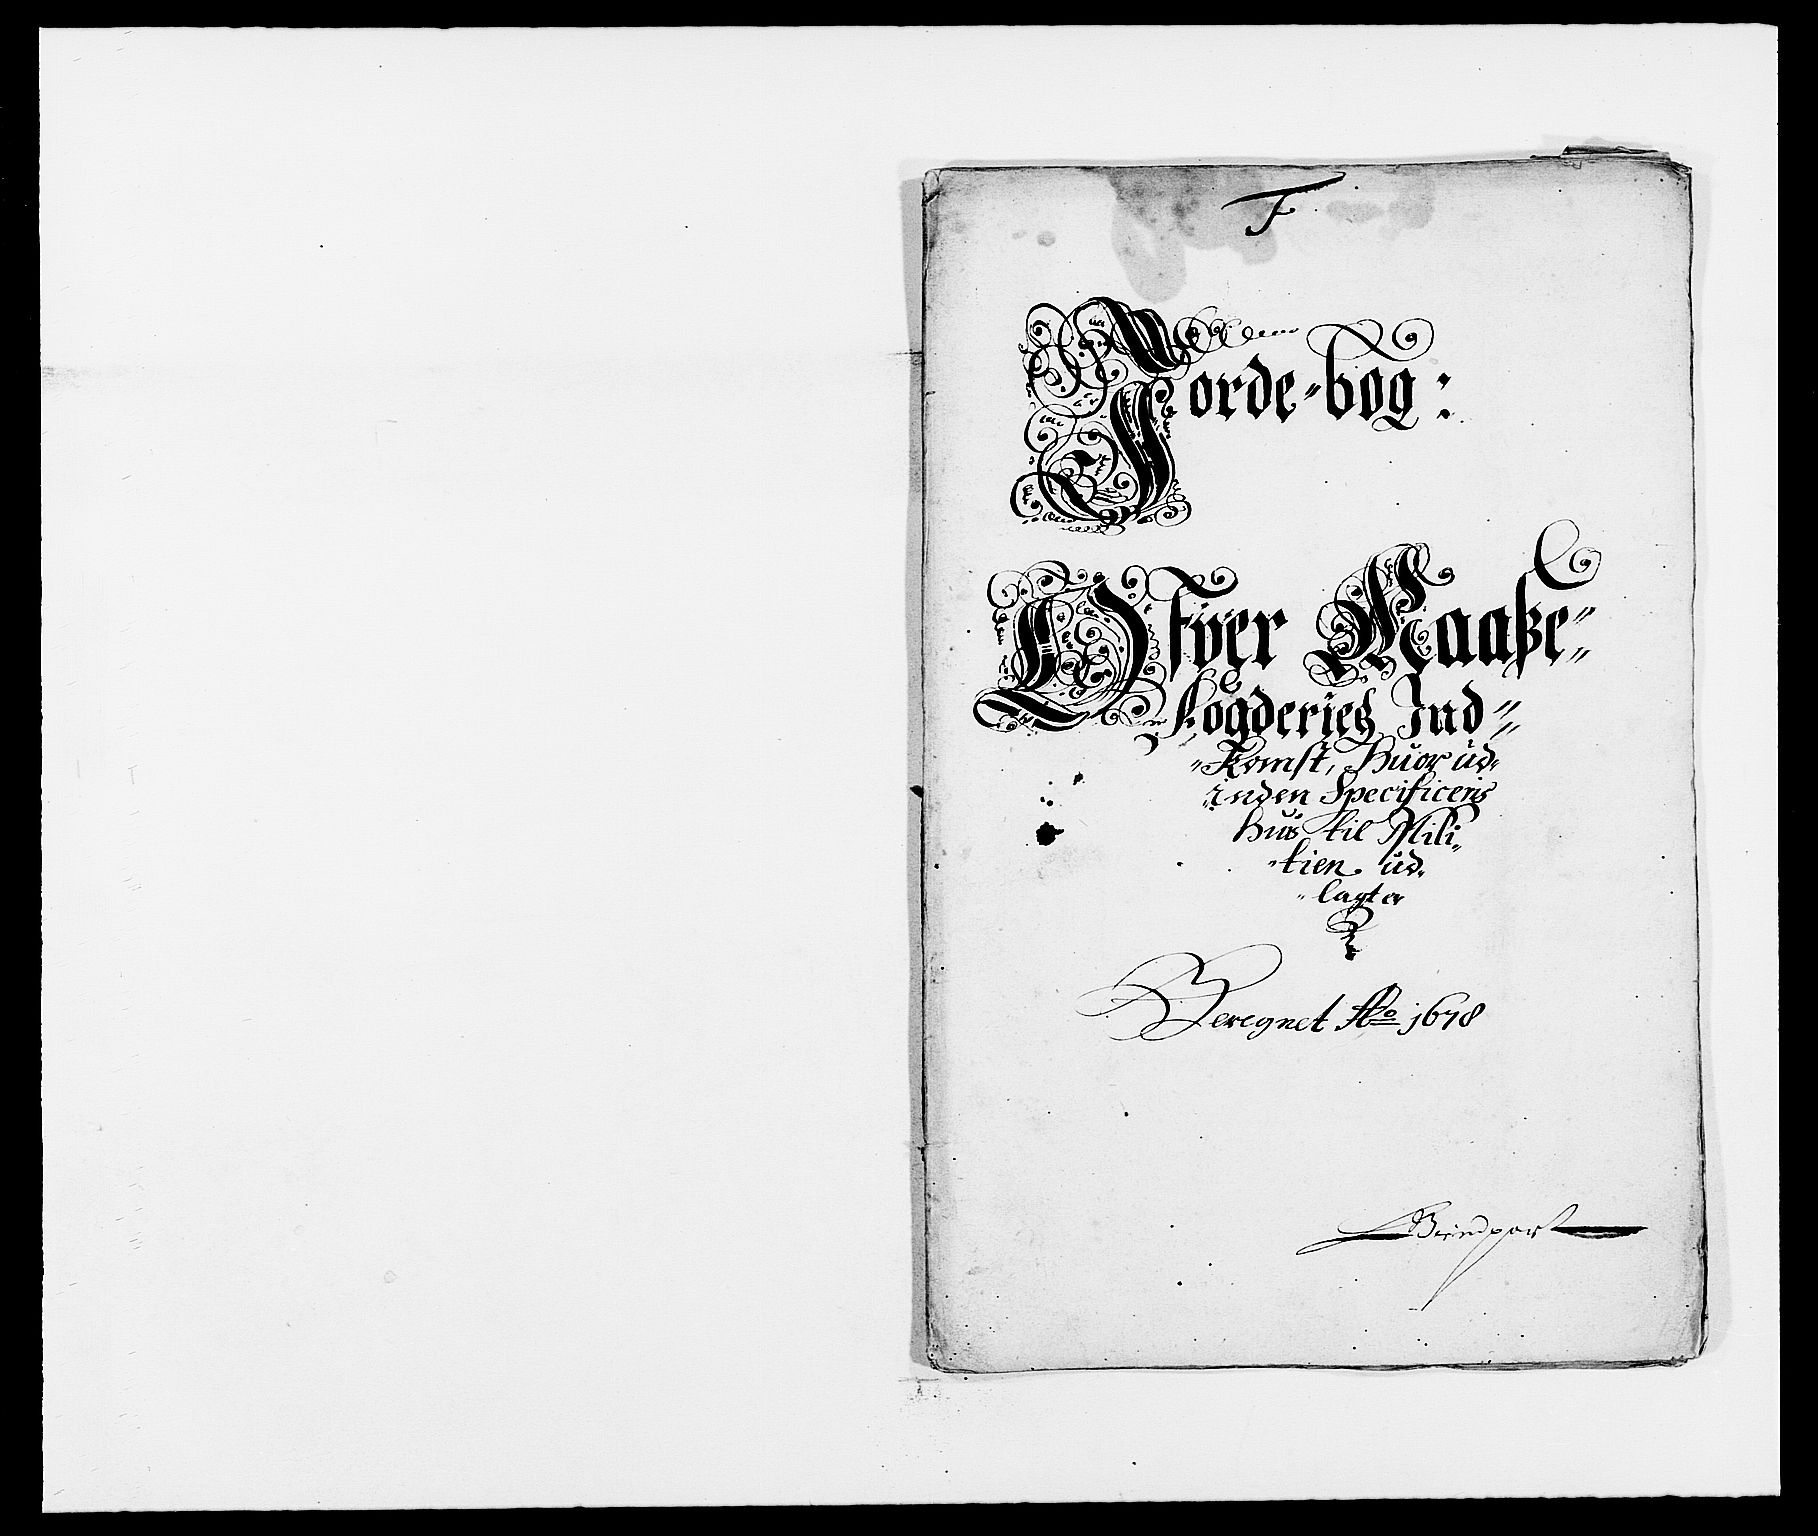 F
Jorde-bog:
Ofver Maaße-
fögderietz Ind-
Komst, huor ud-
inden Specificeris
huis til Mili-
tien ud-
lagt er
Beregnet Ao 1678